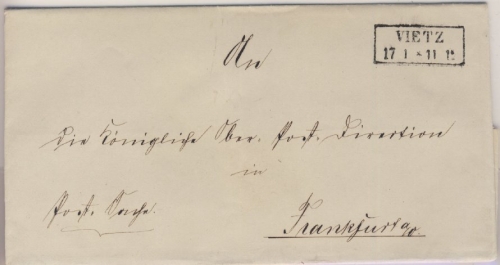 VIETZ
17 1 * 11 12
An
die Königliche Ober-Post-Direction
in
Post-Sache.
Frankfurt a/o